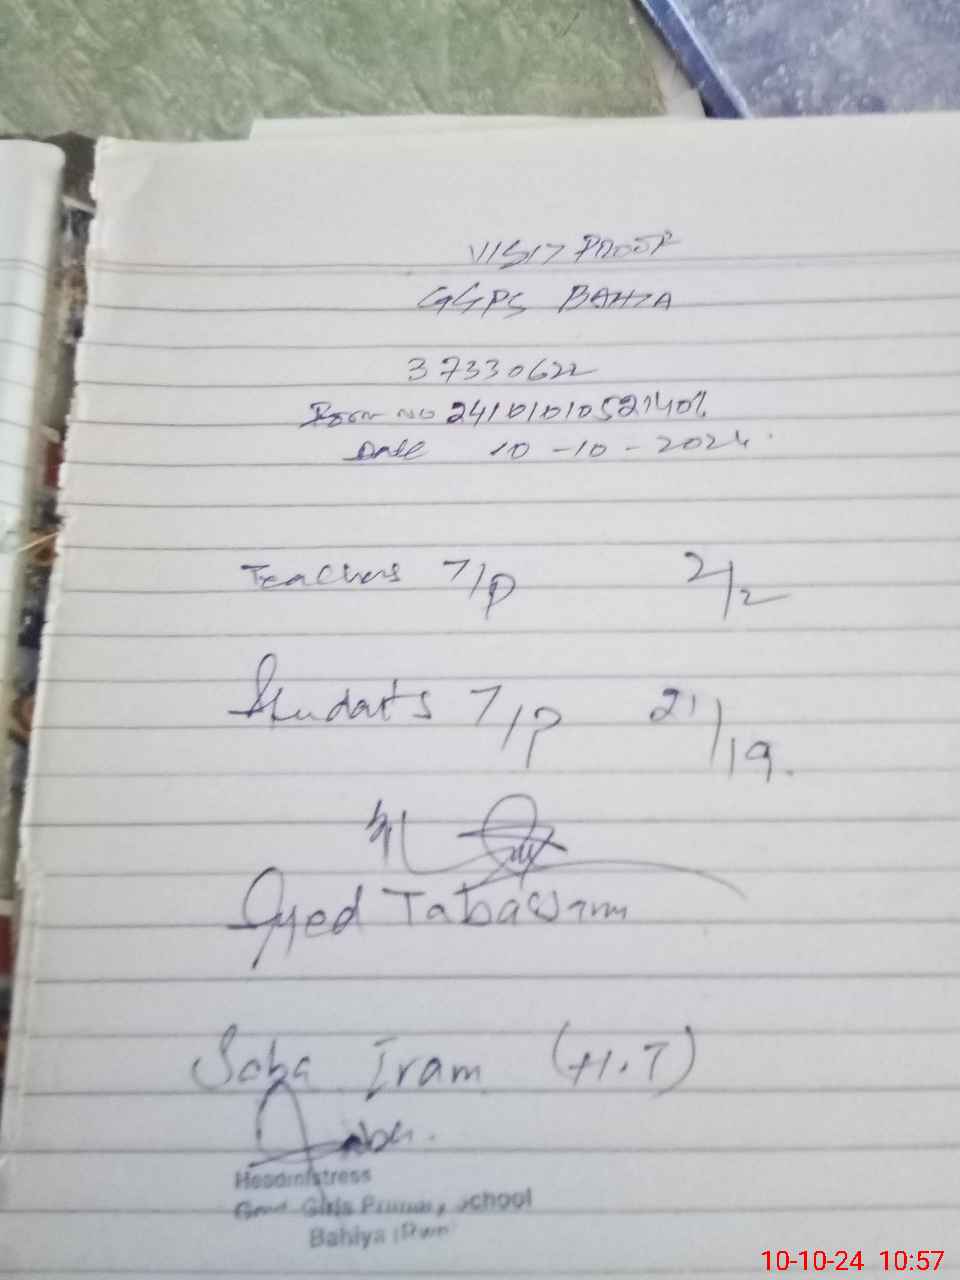 VISIT PROOF
GGPS BAHIA
37330622
Form No 24101010521401
Date 10-10-2024.
Teachers T/P 2/2
Students T/P 21/19.
Syed Tabassum
Saba Iram (H.T)
Saba.
Headmistress
Govt Girls Primary School
Bahiya (Rwp
10-10-24 10:57